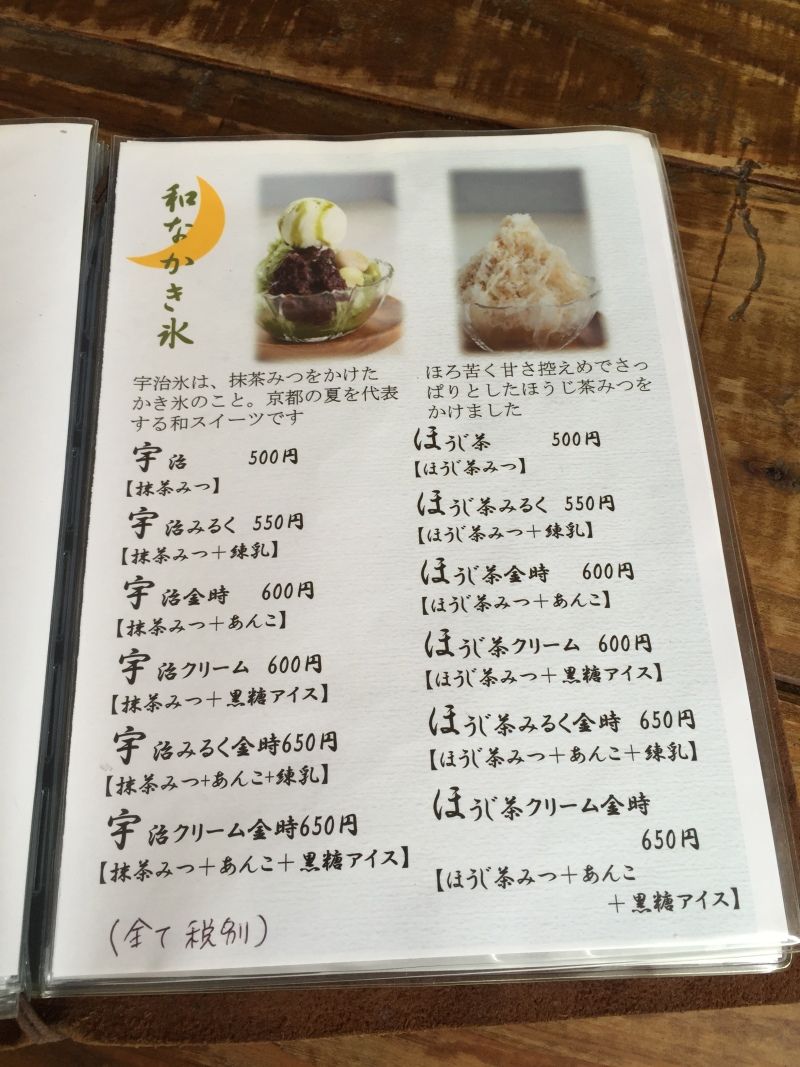 和なかき氷
宇治氷は、抹茶みつをかけた
かき氷のこと。京都の夏を代表
する和スイーツです
宇治 500円
【抹茶みつ】
宇治みるく 550円
【抹茶みつ＋練乳】
宇治金時 600円
【抹茶みつ＋あんこ】
宇治クリーム 600円
【抹茶みつ＋黒糖アイス】
宇治みるく金時650円
【抹茶みつ+あんこ+練乳】
宇治クリーム金時650円
【抹茶みつ＋あんこ＋黒糖アイス】
(全て税別)
ほろ苦く甘さ控えめでさっ
ぱりとしたほうじ茶みつを
かけました
ほうじ茶 500円
【ほうじ茶みつ】
ほうじ茶みるく 550円
【ほうじ茶みつ＋練乳】
ほうじ茶金時 600円
【ほうじ茶みつ＋あんこ】
ほうじ茶クリーム 600円
【ほうじ茶みつ＋黒糖アイス】
ほうじ茶みるく金時 650円
【ほうじ茶みつ＋あんこ＋練乳】
ほうじ茶クリーム金時
650円
【ほうじ茶みつ＋あんこ
＋黒糖アイス】